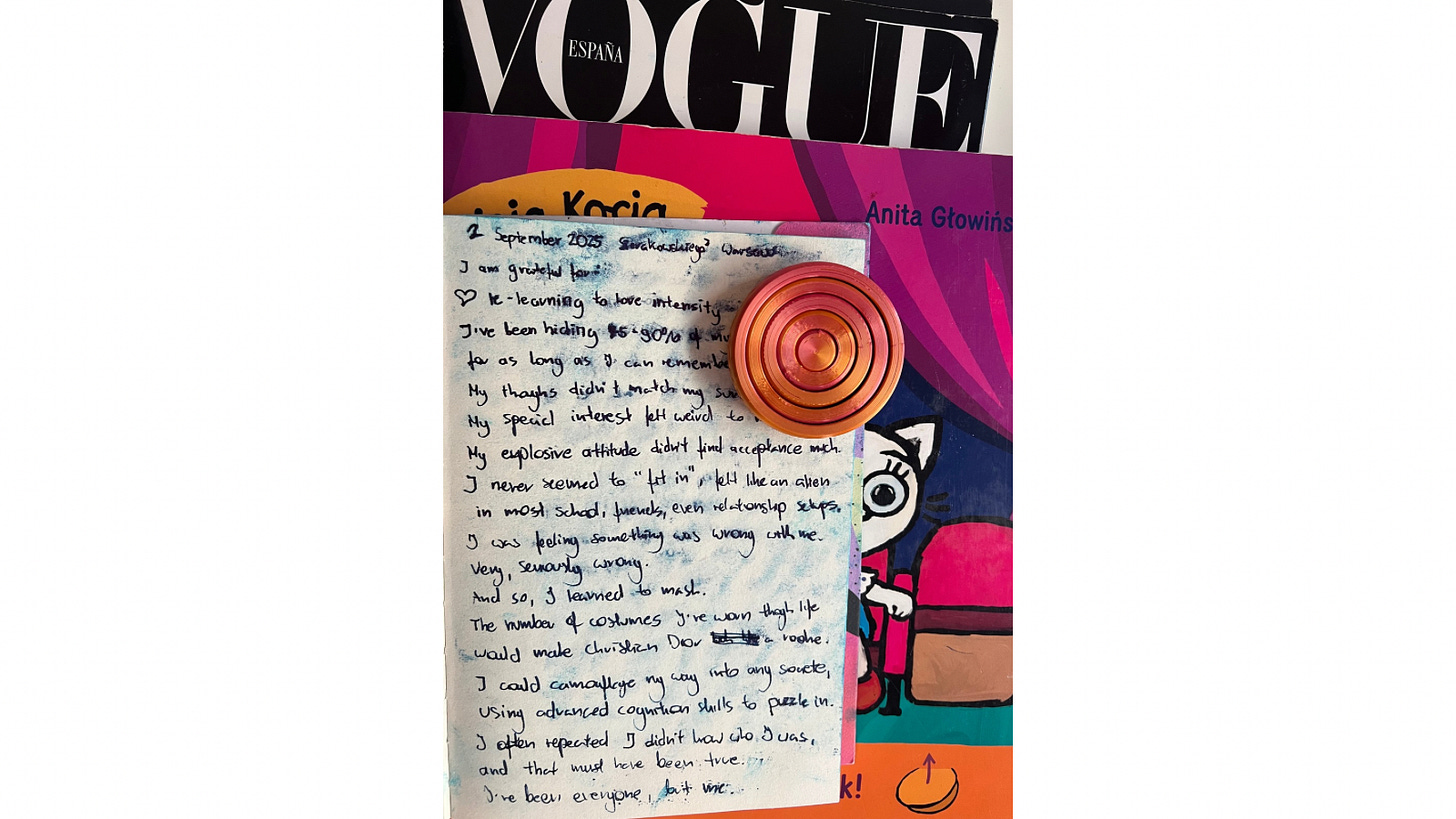 VOGUE
ESPAÑA
Kocia
Anita Głowińs
2 September 2025 Warsaw
I am grateful for:
♡ Re-learning to love intensity
I've been hiding -90% of
for as long as I can remembe
My thoughs didn't match my
My special interest felt weird to
My explosive attitude didn't find acceptance much.
I never seemed to "fit in", felt like an alien
in most school, friends, even relationship setups.
I was feeling something was wrong with me.
Very, seriously wrong.
And so, I learned to mask.
The number of costumes I've worn though life
would make Christian Dior a rookie.
I could camouflage my way into any
using advanced cognition skills to puzzle in.
I often repeated I didn't know who I was,
and that must have been true.
I've been everyone, but me.
k!